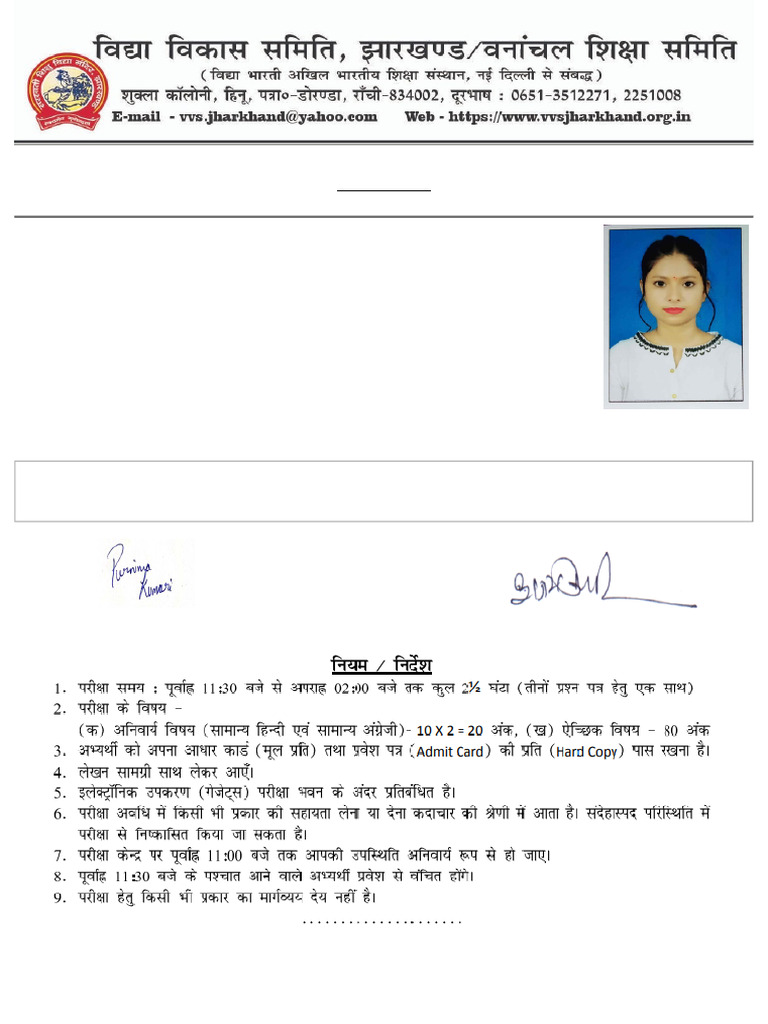 विद्या विकास समिति, झारखण्ड/वनांचल शिक्षा समिति
(विद्या भारती अखिल भारतीय शिक्षा संस्थान, नई दिल्ली से संबद्ध)
शुक्ला कॉलोनी, हिनू, पत्रा०-डोरण्डा, राँची-834002, दूरभाष : 0651-3512271, 2251008
E-mail - vvs.jharkhand@yahoo.com Web - https://www.vvsjharkhand.org.in
Purnima
Kumari
नियम / निर्देश
1. परीक्षा समय : पूर्वाह्न 11:30 बजे से अपराह्न 02:00 बजे तक कुल 2½ घंटा (तीनों प्रश्न पत्र हेतु एक साथ)
2. परीक्षा के विषय -
(क) अनिवार्य विषय (सामान्य हिन्दी एवं सामान्य अंग्रेजी)- 10 X 2 = 20 अंक, (ख) ऐच्छिक विषय - 80 अंक
3. अभ्यर्थी को अपना आधार कार्ड (मूल प्रति) तथा प्रवेश पत्र (Admit Card) की प्रति (Hard Copy) पास रखना है।
4. लेखन सामग्री साथ लेकर आएँ।
5. इलेक्ट्रॉनिक उपकरण (गेजेट्स) परीक्षा भवन के अंदर प्रतिबंधित है।
6. परीक्षा अवधि में किसी भी प्रकार की सहायता लेना या देना कदाचार की श्रेणी में आता है। संदेहास्पद परिस्थिति में
परीक्षा से निष्कासित किया जा सकता है।
7. परीक्षा केन्द्र पर पूर्वाह्न 11:00 बजे तक आपकी उपस्थिति अनिवार्य रूप से हो जाए।
8. पूर्वाह्न 11:30 बजे के पश्चात आने वाले अभ्यर्थी प्रवेश से वंचित होंगे।
9. परीक्षा हेतु किसी भी प्रकार का मार्गव्यय देय नहीं है।